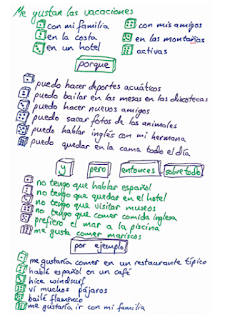 Me gustan las vacaciones
con mi familia
con mis amigos
en la costa
en las montañas
en un hotel
activas
porque
puedo hacer deportes acuáticos
puedo bailar en las mesas en las discotecas
puedo hacer nuevos amigos
puedo sacar fotos de los animales
puedo hablar inglés con mi hermana
puedo quedar en la cama todo el día
y pero entonces sobre todo
no tengo que hablar español
no tengo que quedar en el hotel
no tengo que visitar museos
no tengo que comer comida inglesa
prefiero el mar a la piscina
me gusta comer mariscos
por ejemplo
me gustaría comer en un restaurante típico
hablé español en un café
hice windsurf
vi muchos pájaros
bailé flamenco
me gustaría ir con mi familia